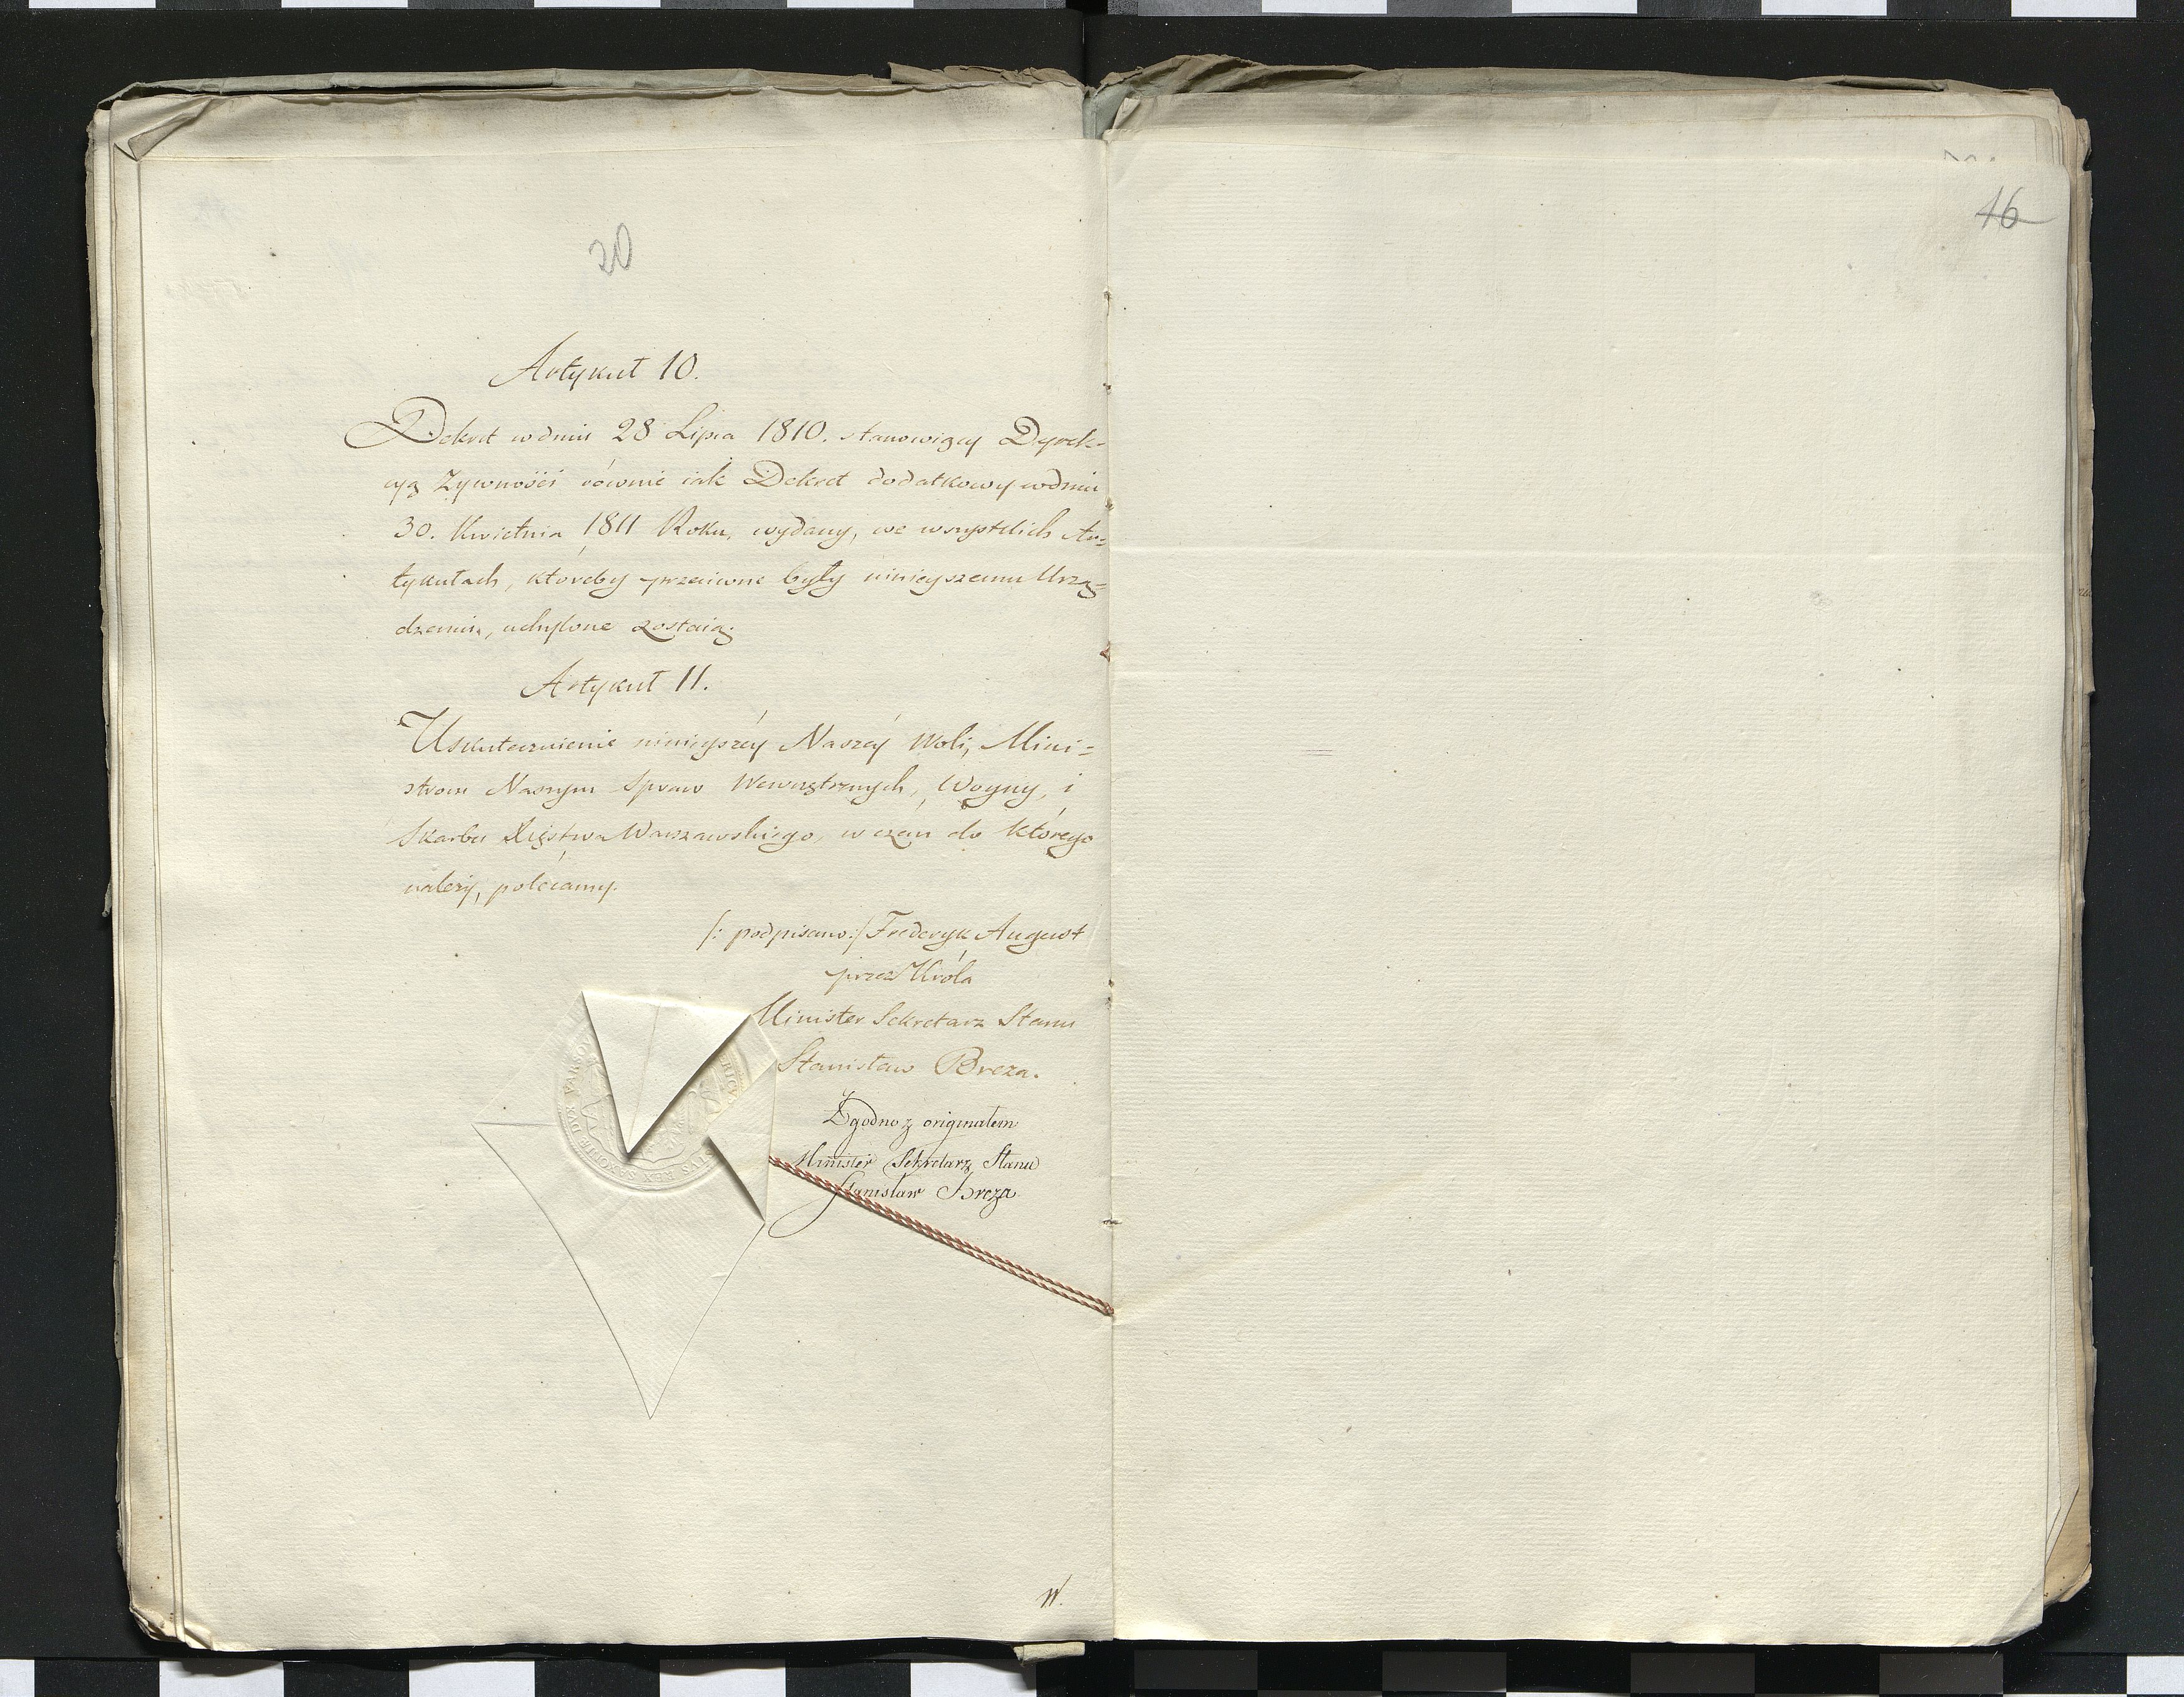 20
Artykuł 10.
Dekret w dniu 28 Lipca 1810. stanowiący Dyrek-
cyą Żywności równie iak Dekret dodatkowy w dniu
30. Kwietnia 1811 Roku, wydany, we wszystkich Ar=
tykułach, któreby przeciwne były ninieyszemu Urzą=
dzeniu, uchylone zostaią.
Artykuł 11.
Uskutecznienie ninieyszéy Naszéy Woli, Mini=
strom Naszym Spraw Wewnętrznych, Woyny, i
Skarbu Xięstwa Warszawskiego, w czém do którego
należy, polécamy.
/: podpisano :/ Frederyk August
przez Króla
Minister Sekretarz Stanu
Stanisław Breza.
Zgodno z originałem
Minister Sekretarz Stanu
Stanisław Breza
W.
16